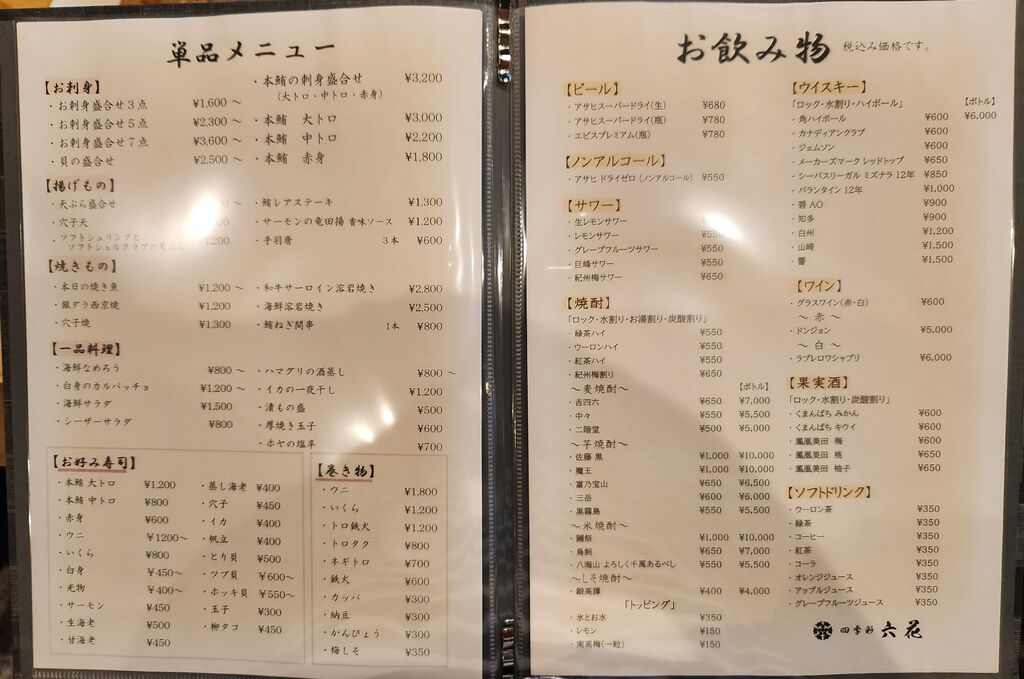 単品メニュー
【お刺身】
・お刺身盛合せ3点 ¥1,600～
・お刺身盛合せ5点 ¥2,300～
・お刺身盛合せ7点 ¥3,600～
・貝の盛合せ ¥2,500～
・本鮪の刺身盛合せ ¥3,200
（大トロ・中トロ・赤身）
・本鮪 大トロ ¥3,000
・本鮪 中トロ ¥2,200
・本鮪 赤身 ¥1,800
【揚げもの】
・天ぷら盛合せ
・穴子天
・ソフトシュリンプと
ソフトシェルクラブの天ぷら ¥1,200
・鮪レアステーキ ¥1,300
・サーモンの竜田揚 香味ソース ¥1,200
・手羽唐 3本 ¥600
【焼きもの】
・本日の焼き魚 ¥1,200～
・銀ダラ西京焼 ¥1,200
・穴子焼 ¥1,300
・和牛サーロイン溶岩焼き ¥2,800
・海鮮溶岩焼き ¥2,500
・鮪ねぎ間串 1本 ¥800
【一品料理】
・海鮮なめろう ¥800～
・白身のカルパッチョ ¥1,200～
・海鮮サラダ ¥1,500
・シーザーサラダ ¥800
・ハマグリの酒蒸し ¥800～
・イカの一夜干し ¥1,200
・漬もの盛 ¥500
・厚焼き玉子 ¥600
・ホヤの塩辛 ¥700
【お好み寿司】
・本鮪 大トロ ¥1,200
・本鮪 中トロ ¥800
・赤身 ¥600
・ウニ ¥1200～
・いくら ¥800
・白身 ¥450～
・光物 ¥400～
・サーモン ¥450
・生海老 ¥500
・甘海老 ¥450
・蒸し海老 ¥400
・穴子 ¥450
・イカ ¥400
・帆立 ¥400
・とり貝 ¥500
・ツブ貝 ¥600～
・ホッキ貝 ¥550～
・玉子 ¥300
・柳タコ ¥450
【巻き物】
・ウニ ¥1,800
・いくら ¥1,200
・トロ鉄火 ¥1,200
・トロタク ¥800
・ネギトロ ¥700
・鉄火 ¥600
・カッパ ¥300
・納豆 ¥300
・かんぴょう ¥300
・梅しそ ¥350
お飲み物 税込み価格です。
【ビール】
・アサヒスーパードライ(生) ¥680
・アサヒスーパードライ(瓶) ¥780
・エビスプレミアム(瓶) ¥780
【ノンアルコール】
・アサヒ ドライゼロ (ノンアルコール) ¥550
【サワー】
・生レモンサワー
・レモンサワー ¥550
・グレープフルーツサワー ¥550
・巨峰サワー ¥550
・紀州梅サワー ¥650
【焼酎】
「ロック・水割り・お湯割り・炭酸割り」
・緑茶ハイ ¥550
・ウーロンハイ ¥550
・紅茶ハイ ¥550
・紀州梅割り ¥650
～麦焼酎～ 【ボトル】
・吉四六 ¥650 ¥7,000
・中々 ¥550 ¥5,500
・二階堂 ¥500 ¥5,000
～芋焼酎～
・佐藤 黒 ¥1,000 ¥10,000
・魔王 ¥1,000 ¥10,000
・富乃宝山 ¥650 ¥6,500
・三岳 ¥600 ¥6,000
・黒霧島 ¥550 ¥5,500
～米焼酎～
・獺祭 ¥1,000 ¥10,000
・鳥飼 ¥650 ¥7,000
・八海山 よろしく千萬あるべし ¥550 ¥5,500
～しそ焼酎～
・鍛高譚 ¥400 ¥4,000
「トッピング」
・氷とお水 ¥350
・レモン ¥150
・南高梅(一粒) ¥150
【ウイスキー】
「ロック・水割り・ハイボール」 【ボトル】
・角ハイボール ¥600 ¥6,000
・カナディアンクラブ ¥600
・ジェムソン ¥600
・メーカーズマーク レッドトップ ¥650
・シーバスリーガル ミズナラ 12年 ¥850
・バランタイン 12年 ¥1,000
・碧 AO ¥900
・知多 ¥900
・白州 ¥1,200
・山崎 ¥1,500
・響 ¥1,500
【ワイン】
・グラスワイン(赤・白) ¥600
～ 赤 ～
・ドンジョン ¥5,000
～ 白 ～
・ラブレロワシャブリ ¥6,000
【果実酒】
「ロック・水割り・炭酸割り」
・くまんばち みかん ¥600
・くまんばち キウイ ¥600
・鳳凰美田 梅 ¥600
・鳳凰美田 桃 ¥650
・鳳凰美田 柚子 ¥650
【ソフトドリンク】
・ウーロン茶 ¥350
・緑茶 ¥350
・コーヒー ¥350
・紅茶 ¥350
・コーラ ¥350
・オレンジジュース ¥350
・アップルジュース ¥350
・グレープフルーツジュース ¥350
四季彩 六花